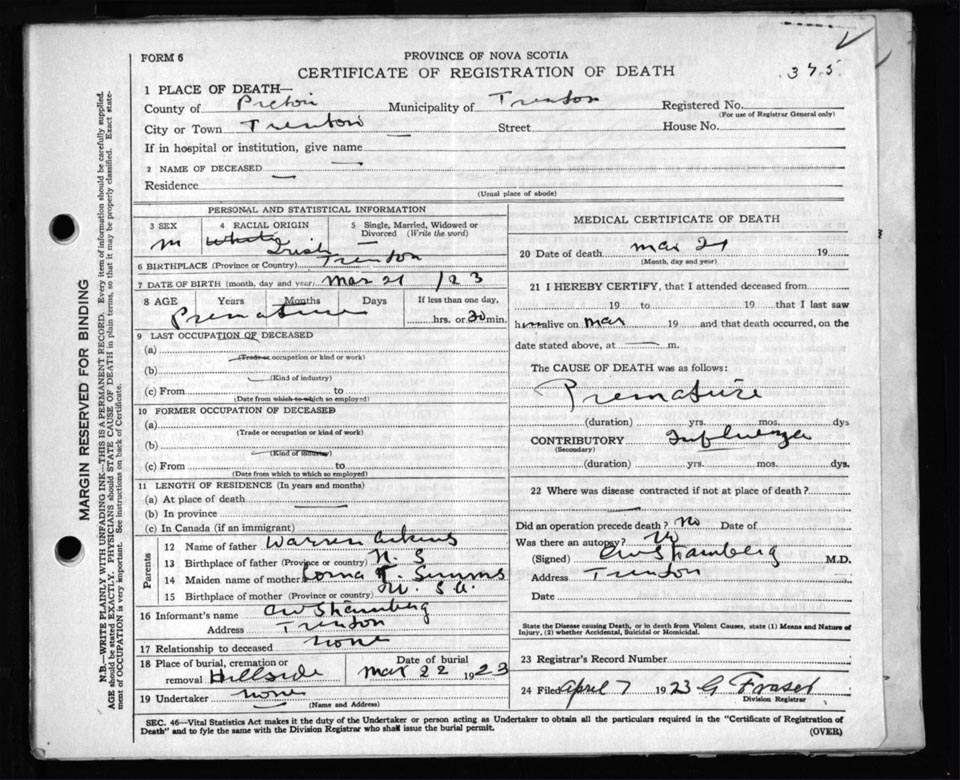 FORM 6
PROVINCE OF NOVA SCOTIA
CERTIFICATE OF REGISTRATION OF DEATH
375
1 PLACE OF DEATH—
County of Pictou Municipality of Trenton Registered No.
(For use of Registrar General only)
City or Town Trenton Street House No.
If in hospital or institution, give name
2 NAME OF DECEASED
Residence
(Usual place of abode)
MARGIN RESERVED FOR BINDING
N.B.—WRITE PLAINLY WITH UNFADING INK—THIS IS A PERMANENT RECORD. Every item of information should be carefully supplied.
AGE should be stated EXACTLY. PHYSICIANS should STATE CAUSE OF DEATH in plain terms, so that it may be properly classified. Exact state-
ment of OCCUPATION is very important. See instructions on back of Certificate.
PERSONAL AND STATISTICAL INFORMATION
3 SEX 4 RACIAL ORIGIN 5 Single, Married, Widowed or
Divorced (Write the word)
M White
Irish
6 BIRTHPLACE (Province or Country) Trenton
7 DATE OF BIRTH (month, day and year) Mar 21 /23
8 AGE Years Months Days If less than one day,
Premature hrs. or 30 min.
9 LAST OCCUPATION OF DECEASED
(a)
(Trade or occupation or kind or work)
(b)
(Kind of industry)
(c) From to
(Date from which to which so employed)
10 FORMER OCCUPATION OF DECEASED
(a)
(Trade or occupation or kind of work)
(b)
(Kind of industry)
(c) From to
(Date from which to which so employed)
11 LENGTH OF RESIDENCE (In years and months)
(a) At place of death
(b) In province
(c) In Canada (if an immigrant)
Parents
12 Name of father Warren
13 Birthplace of father (Province or country) N. S
14 Maiden name of mother Lorna F. Simms
15 Birthplace of mother (Province or country)
16 Informant's name CW Shamberg
Address Trenton
17 Relationship to deceased none
18 Place of burial, cremation or
removal Hillside
Date of burial
Mar 22 1923
19 Undertaker none
(Name and Address)
MEDICAL CERTIFICATE OF DEATH
20 Date of death Mar 21 19
(Month, day and year)
21 I HEREBY CERTIFY, that I attended deceased from
19 to 19 that I last saw
him alive on Mar 19 and that death occurred, on the
date stated above, at m.
The CAUSE OF DEATH was as follows:
Premature
(duration) yrs. mos. dys
CONTRIBUTORY Influenza
(Secondary)
(duration) yrs. mos. dys.
22 Where was disease contracted if not at place of death?
Did an operation precede death? No Date of
Was there an autopsy? No
(Signed) CW Shamberg M.D.
Address Trenton
Date
State the Disease causing Death, or in death from Violent Causes, state (1) Means and Nature of
Injury, (2) whether Accidental, Suicidal or Homicidal.
23 Registrar's Record Number
24 Filed April 7 1923 G Fraser
Division Registrar
SEC. 46—Vital Statistics Act makes it the duty of the Undertaker or person acting as Undertaker to obtain all the particulars required in the "Certificate of Registration of
Death" and to fyle the same with the Division Registrar who shall issue the burial permit.
(OVER)